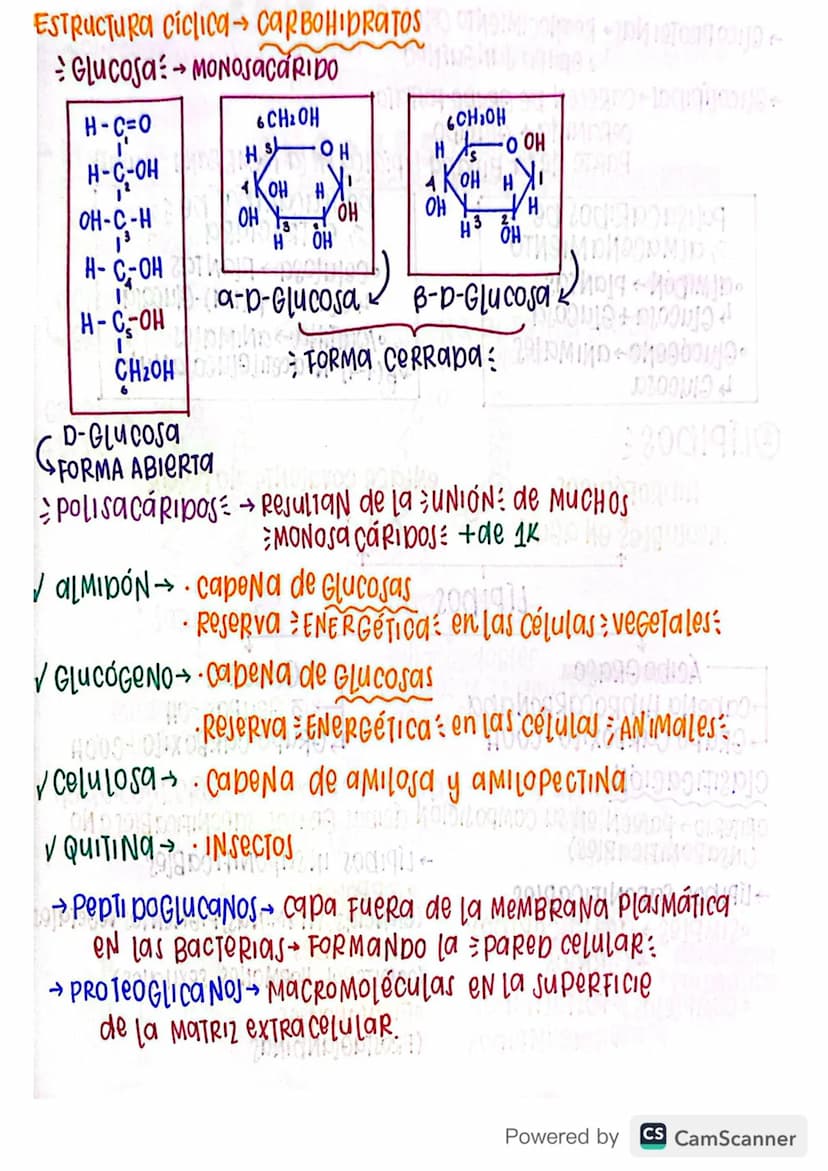 ESTRUCTURA CÍCLICA → CARBOHIDRATOS
GLUCOSA → MONOSACÁRIDO
H-C=O
1
H-C-OH
2
OH-C-H
3
H-C-OH
4
H-C-OH
5
CH2OH
6
6 CH2OH
H 5 O H
4 OH H 1
OH 3 2 OH
H OH
6 CH2OH
H 5 O OH
4 OH H 1
OH 3 2 H
H OH
α-D-GLUCOSA
β-D-GLUCOSA
FORMA CERRADA
D-GLUCOSA
FORMA ABIERTA
POLISACÁRIDOS → RESULTAN de la UNIÓN de MUCHOS
MONOSACÁRIDOS +de 1K
✓ ALMIDÓN → · CADENA de GLUCOSAS
· RESERVA ENERGÉTICA en las CÉLULAS VEGETALES
✓ GLUCÓGENO → · CADENA de GLUCOSAS
· RESERVA ENERGÉTICA en las CÉLULAS ANIMALES
✓ CELULOSA → · CADENA de AMILOSA y AMILOPECTINA
✓ QUITINA → · INSECTOS
→ PEPTIDOGLUCANOS → CAPA FUERA de la MEMBRANA PLASMÁTICA
EN las BACTERIAS → FORMANDO la PARED CELULAR
→ PROTEOGLICANOS → MACROMOLÉCULAS EN la SUPERFICIE
de la MATRIZ EXTRACELULAR.
Powered by CS CamScanner